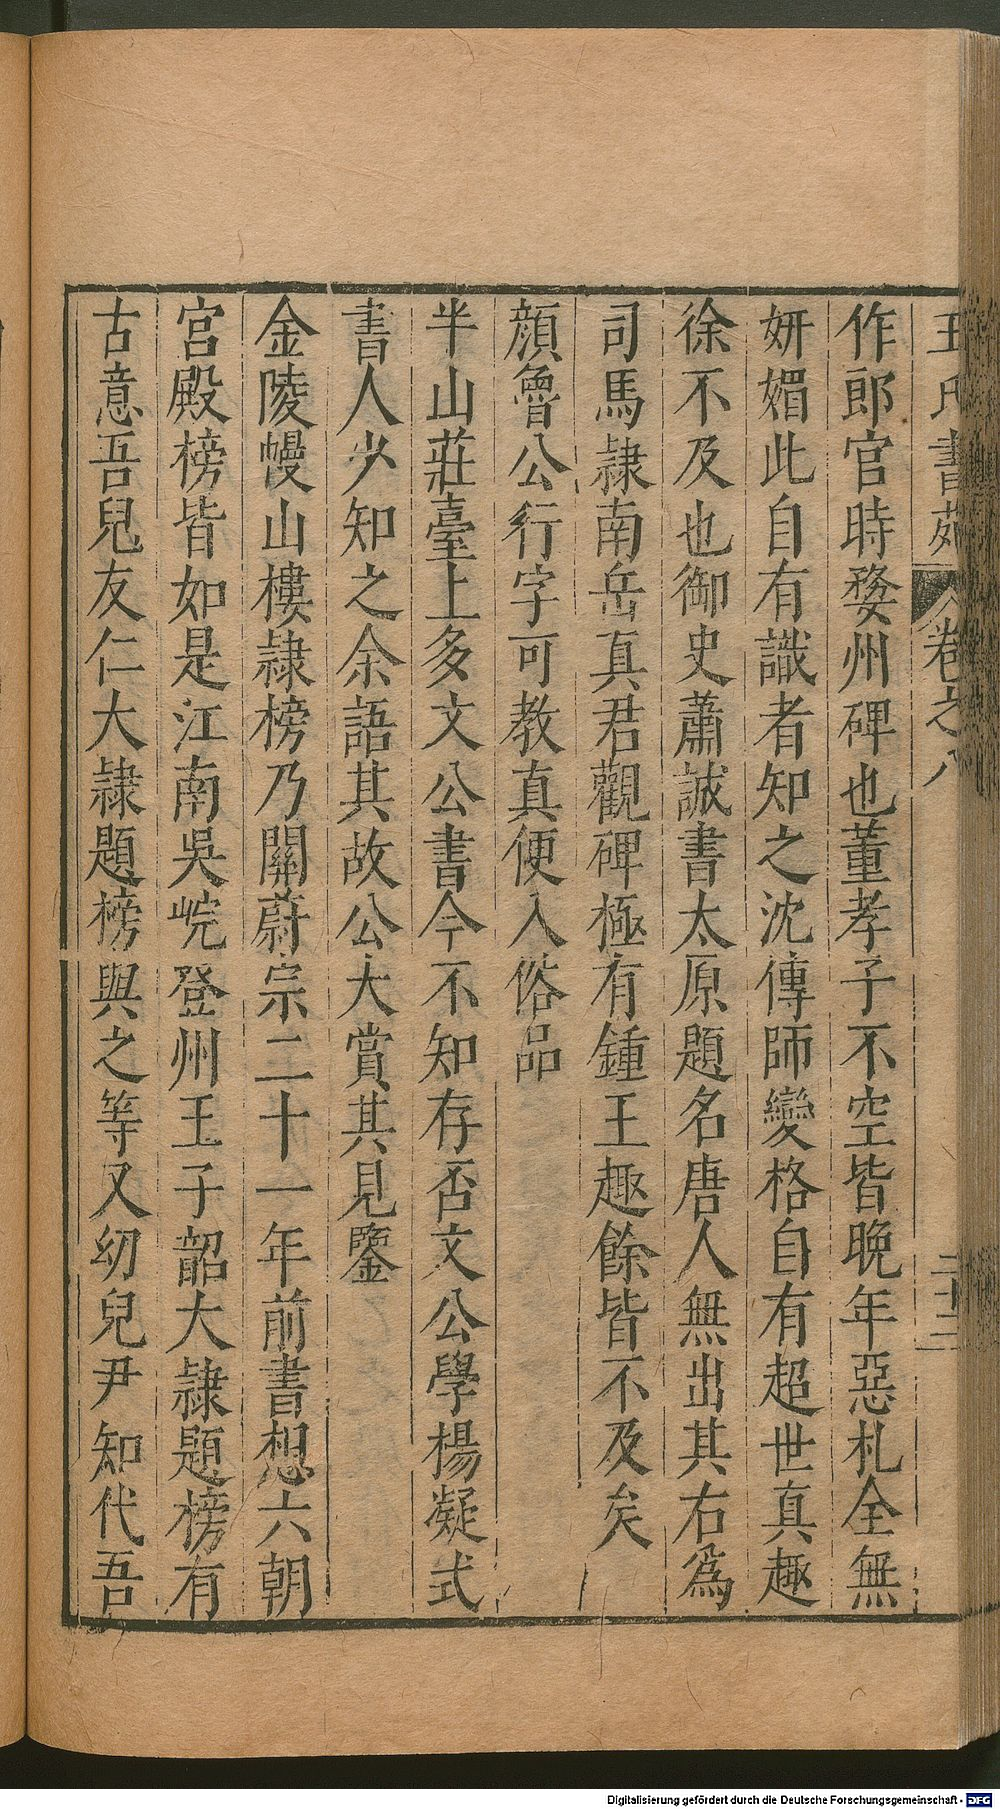 王氏書苑 卷之八 二十二
作郎官時婺州碑也董孝子不空皆晚年惡札全無
妍媚此自有識者知之沈傳師變格自有超世真趣
徐不及也御史蕭誠書太原題名唐人無出其右為
司馬隸南岳真君觀碑極有鍾王趣餘皆不及矣
顔魯公行字可教真便入俗品
半山莊臺上多文公書今不知存否文公學楊凝式
書人少知之余語其故公大賞其見鑒
金陵幔山樓隸榜乃關蔚宗二十一年前書想六朝
宮殿榜皆如是江南吳皖登州王子韶大隸題榜有
古意吾兒友仁大隸題榜與之等又幼兒尹知代吾
Digitalisierung gefördert durch die Deutsche Forschungsgemeinschaft - DFG